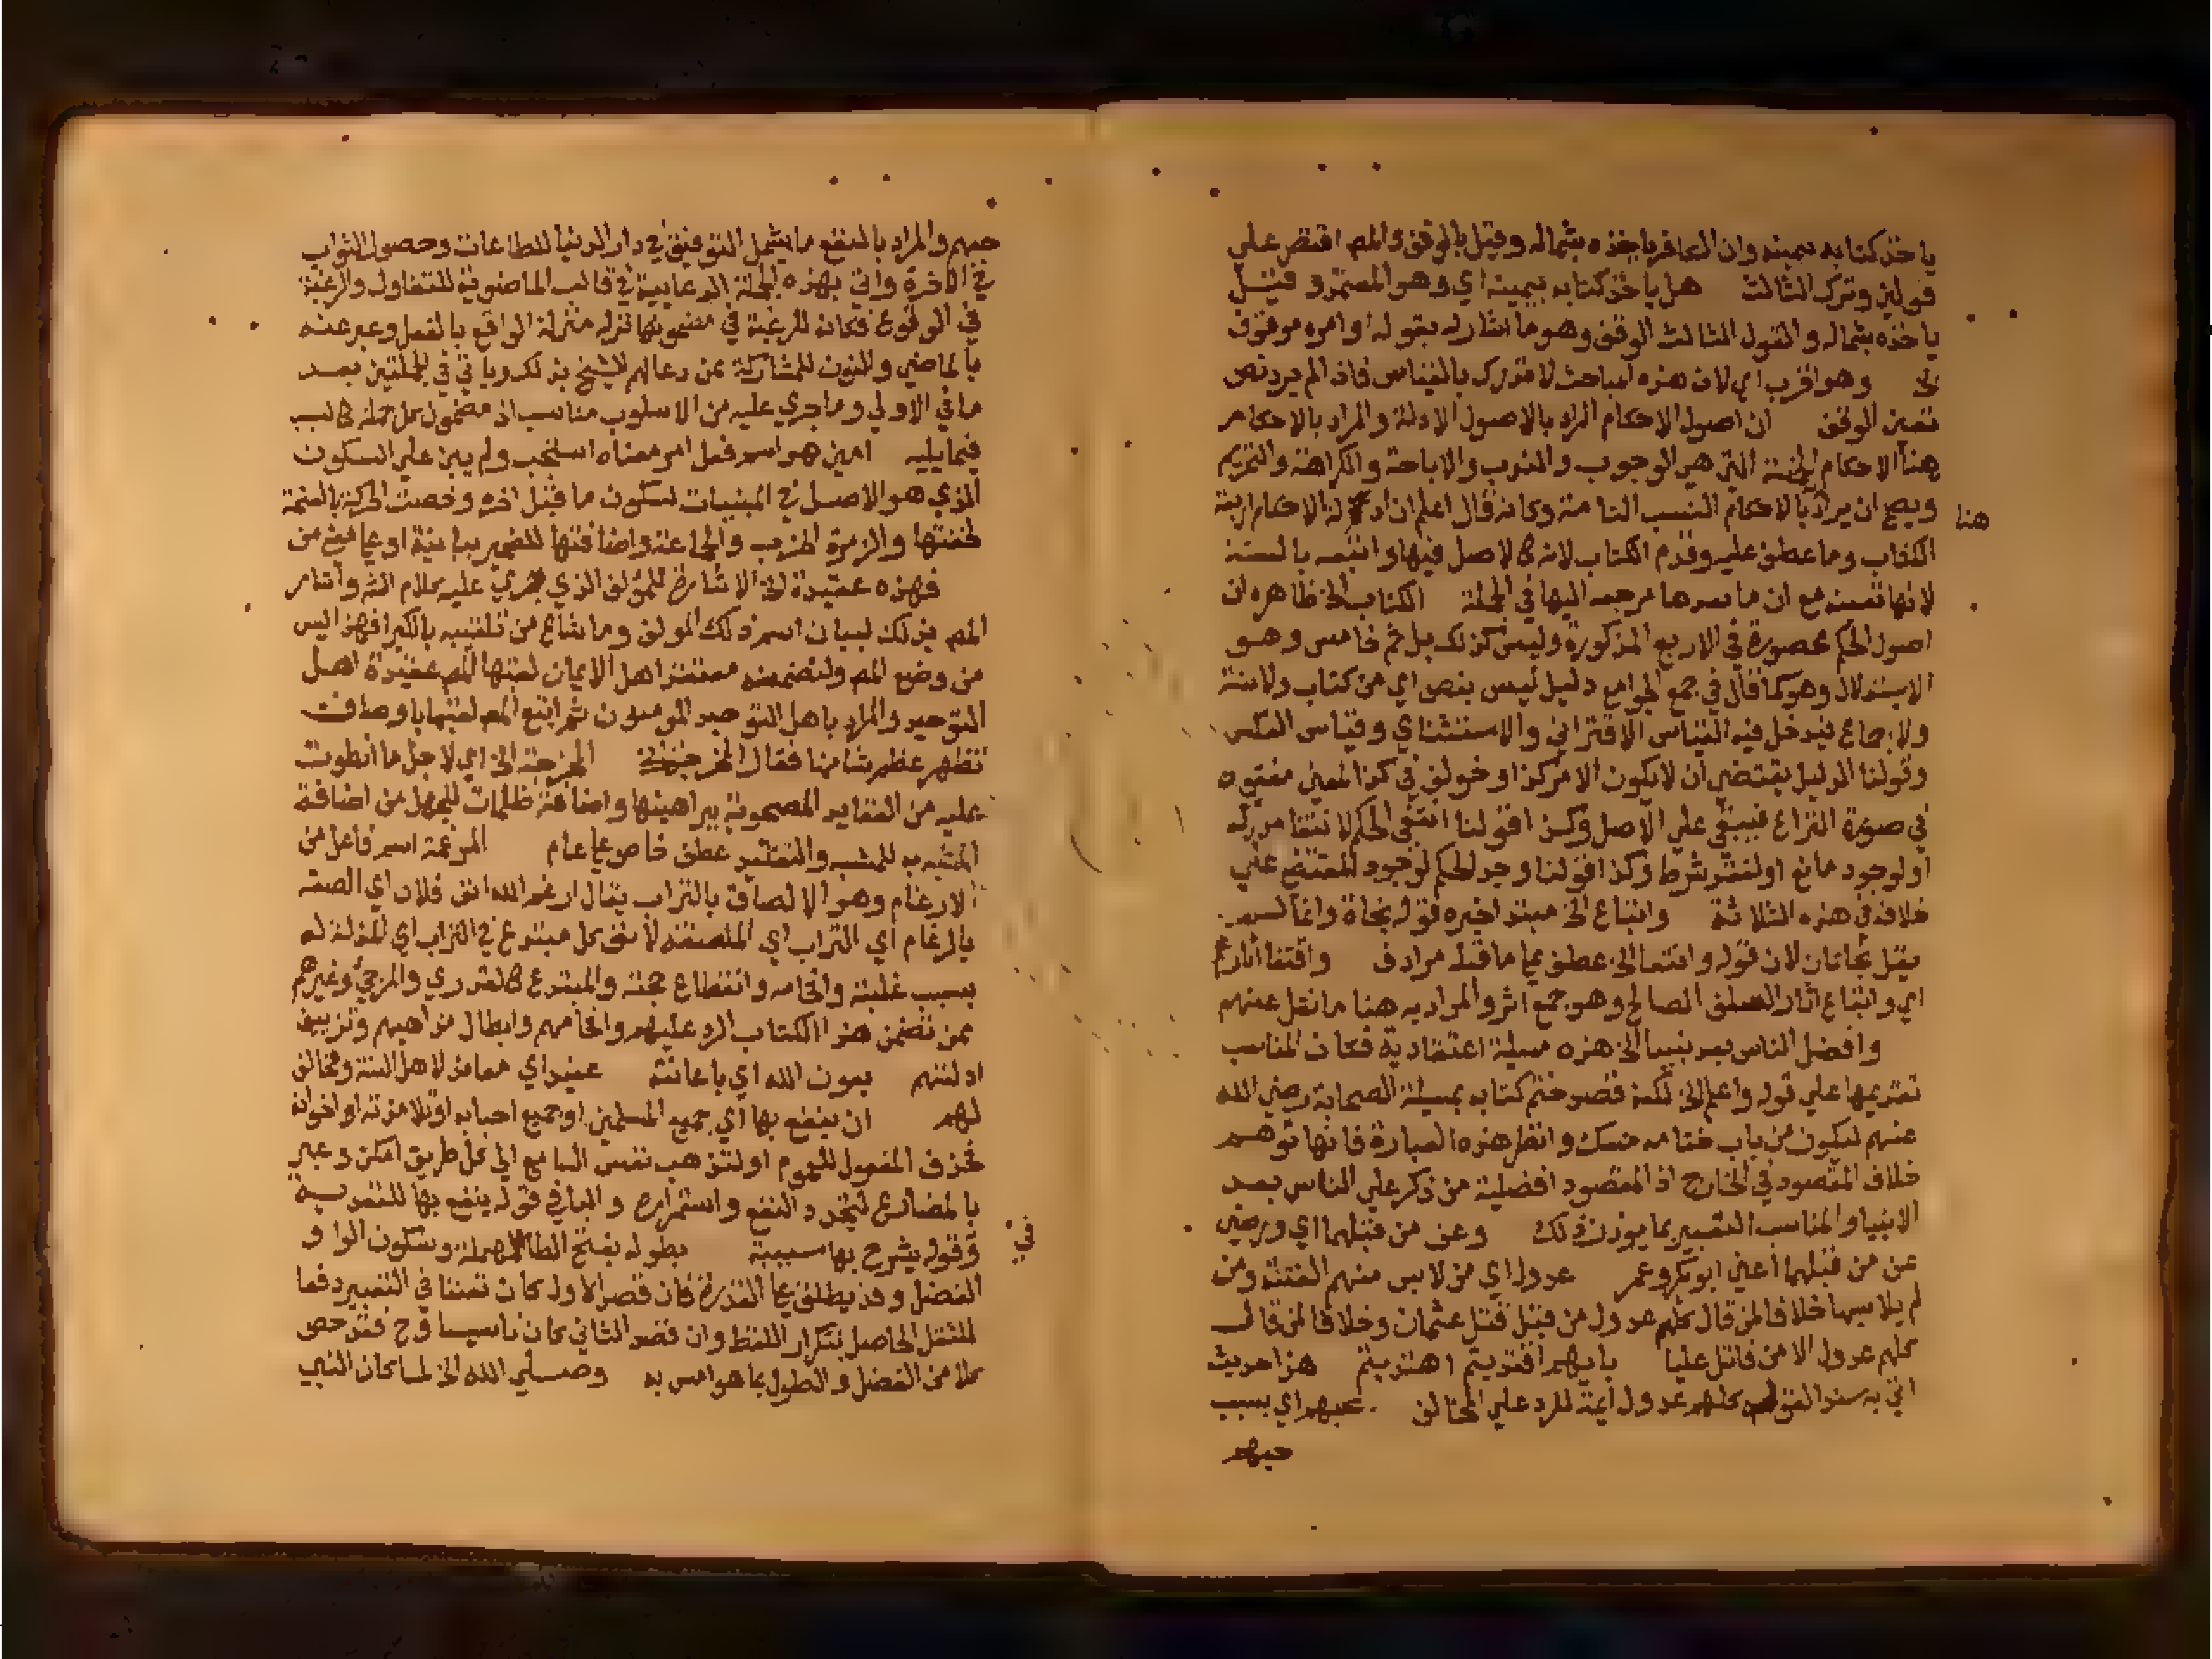 ياخذ كتابه بيمينه وان الكافر ياخذه بشماله وقيل بالوقف والمص اقتصر على
قولين وترك الثالث هل ياخذ كتابه بيمينه اي وهو المعتمد وقيل
ياخذه بشماله والقول الثالث الوقف وهو ما اشار له بقوله او امره موقوف
الخ وهو اقرب اي لان هذه المباحث لا تدرك بالقياس فاذا لم يرد نص
تعين الوقف ان اصول الاحكام المراد بالاصول الادلة والمراد بالاحكام
هنا الاحكام الخمسة التي هي الوجوب والندب والاباحة والكراهة والتحريم
ويصح ان يراد بالاحكام النسب التامة وكانه قال اعلم ان ادلة الاحكام اربعة
هنا
الكتاب وما عطف عليه وقدم الكتاب لانه كالاصل فيها واتبعه بالسنة
لانها تعينه مع ان ما بعدها مرجعه اليها في الجملة الكتاب الخ ظاهره ان
اصول الحكم محصورة في الاربع المذكورة وليس كذلك بل ثم خامس وهو
الاستدلال وهو كما قال في جمع الجوامع دليل ليس بنص اي من كتاب ولا سنة
ولا اجماع فيدخل فيه القياس الاقتراني والاستثنائي وقياس العكس
وقولنا الدليل يقتضي ان لا يكون الامر كذا وخولف في كذا لمعنى مفقود
في صورة النزاع فيبقى على الاصل وكذا قولنا انتفى الحكم لانتفا مدركه
او لوجود مانع او لفقد شرط وكذا قولنا وجد الحكم لوجود المقتضي على
خلاف في هذه الثلاثة واتباع الخ مبتدا خبره قوله نجاة وانما لم
يقل نجاتان لان قوله واقتفا الخ عطف على ما قبله مرادف واقتفا اثارهم
اي واتباع اثار السلف الصالح وهو جمع اثر والمراد به هنا ما نقل عنهم
وافضل الناس بعد نبينا الخ هذه مسيلة اعتقادية فكان المناسب
تقديمها على قوله واعلم الخ لكنه قصد ختم كتابه بمسيلة الصحابة رضي الله
عنهم ليكون من باب ختامه مسك وانظر هذه العبارة فانها توهم
خلاف المقصود في الخارج اذ المقصود افضلية من ذكر على الناس بعد
الانبيا والمناسب التعبير بما يوذن بذلك وعن من قبلهما اي ورضي
عن من قبلهما اعني ابو بكر وعمر عدول اي من لابس منهم الفتنة ومن
لم يلابسها خلافا لمن قال كلهم عدول من قبل قتل عثمان وخلافا لمن قال
كلهم عدول الا من قاتل عليا بايهم اقتديتم اهتديتم هذا حديث
اتي به سندا لقوله كلهم عدول ايمة للرد على المخالف بحبهم اي بسبب
حبهم
حبهم والمراد بالنفع ما يشمل التوفيق في دار الدنيا للطاعات وحصول الثواب
في الاخرة واتي بهذه الجملة الدعايية في قالب الماضوية للتفاول والرغبة
في الوقوع فكانه للرغبة في مضمونها نزله منزلة الواقع بالفعل وعبر عنه
بالماضي والنون للمشاركة عن دعا لهم الشيخ بذلك وياتي في الجملتين بعد
ما في الاولى وما جري عليه من الاسلوب مناسب اذ مضمون كل جملة كالسبب
فيما يليه امين هو اسم فعل امر معناه استجب ولم يبن على السكون
الذي هو الاصل في المبنيات لسكون ما قبل اخره وخصت الحركة بالفتحة
لخفتها والزمرة الحزب والجماعة واضافتها للضمير بيانية او على معنى من
فهذه عقيدة الخ الاشارة للمؤلف الذي جري عليه كلام الشه واشار
المص بذلك لبيان اسم ذلك المولف وما شاع من تلقيبه بالكبرا فهذا ليس
من وضع المص ولتضمنه معتقد اهل الايمان لقبها المص عقيدة اهل
التوحيد والمراد باهل التوحيد المومنون ثم اتبع المص لقبها باوصاف
تظهر عظم شانها فقال المخرجة المخرجة الخ اي لاجل ما انطوت
عليه من العقايد المصحوبة ببراهينها واضافة ظلمات للجهل من اضافة
المشبه به للمشبه والتقليد عطف خاص على عام المرغمة اسم فاعل من
الارغام وهو الالصاق بالتراب يقال ارغم الله انف فلان اي الصقه
بالرغام اي التراب اي الملصقة لانف كل مبتدع في التراب اي المذلة له
بسبب غلبته وافحامه وانقطاع حجته والمبتدع كالقدري والمرجئ وغيرهم
ممن تضمن هذا الكتاب الرد عليهم وافحامهم وابطال مذاهبهم وتزييف
ادلتهم بعون الله اي باعانته عنيد اي معاند لاهل السنة ومخالف
لهم ان ينفع بها اي جميع المسلمين او جميع احبابه او تلامذته او اخوانه
فحذف المفعول للعموم او لتذهب نفس السامع الي كل طريق امكن وعبر
بالمضارع لتجدد النفع واستمراره والبا في قوله ينفع بها للتعدية
في
وقوله يشرح بها سببية بطوله بفتح الطا المهملة وسكون الواو
الفضل وقد يطلق على القدرة فان قصد الاول كان تفننا في التعبير دفعا
للثقل الحاصل بتكرار اللفظ وان قصد الثاني كان تاسيسا وح فقد خص
كلا من الفضل والطول بما هو امس به وصلى الله الخ لما كان النبي